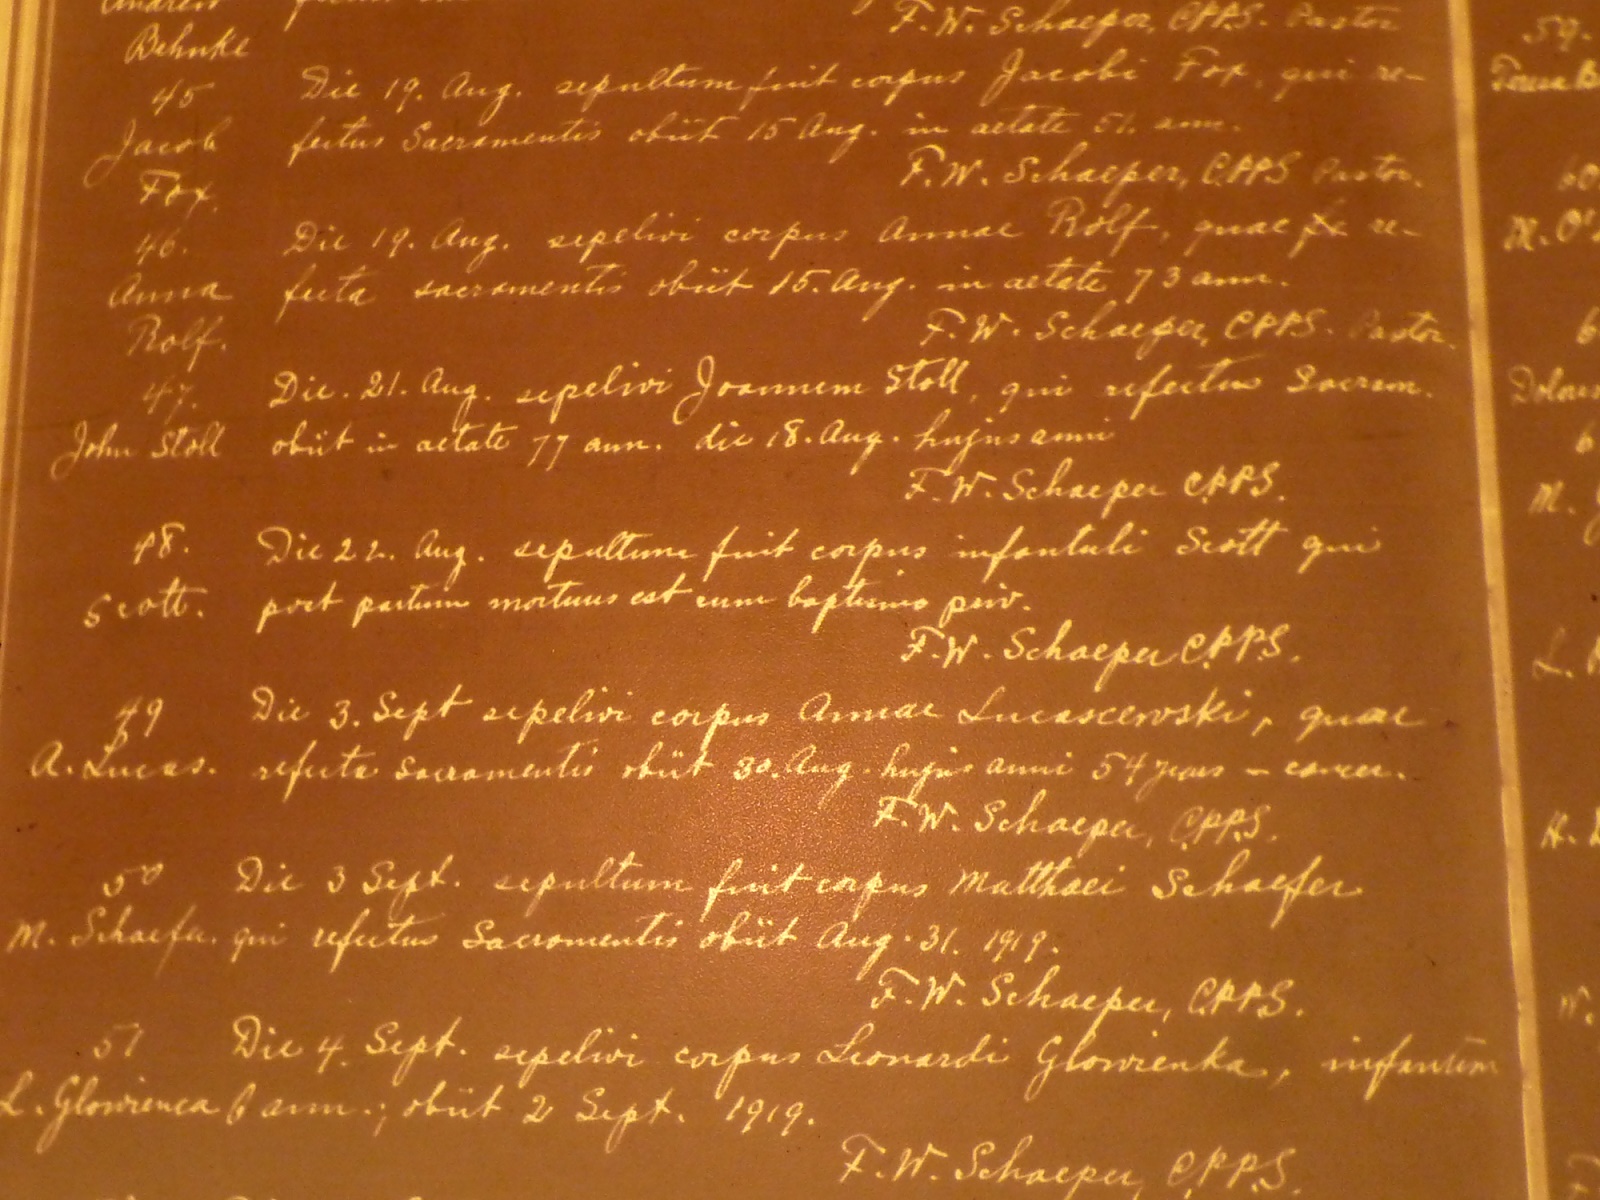 F. W. Schaeper, C.PP.S. Pastor
Behnke
45 Die 19. Aug. sepultum fuit corpus Jacobi Fox, qui re-
Jacob fectus Sacramentis obiit 15 Aug. in aetate 51. ann.
F. W. Schaeper, C.PP.S Pastor.
Fox.
46. Die 19. Aug. sepelivi corpus Annae Rolf, quae re-
Anna fecta sacramentis obiit 15. Aug. in aetate 73 ann.
Rolf. F. W. Schaeper, C.PP.S. Pastor.
47. Die. 21. Aug. sepelivi Joannem Stoll, qui refectus Sacram.
John Stoll obiit in aetate 77 ann. die 18. Aug. hujus anni
F. W. Schaeper C.PP.S.
48. Die 22. Aug. sepultum fuit corpus infantuli Scott qui
Scott. post partum mortuus est cum baptismo priv.
F. W. Schaeper C.PP.S.
49 Die 3. Sept sepelivi corpus Annae Lucascewski, quae
A. Lucas. refecta Sacramentis obiit 30. Aug. hujus anni 54 years - cancer.
F. W. Schaeper, C.PP.S.
50 Die 3 Sept. sepultum fuit corpus Matthaei Schaefer
M. Schaefer. qui refectus Sacramentis obiit Aug. 31. 1919.
F. W. Schaeper, C.PP.S.
51 Die 4. Sept. sepelivi corpus Leonardi Glowienka, infantem
L. Glowienca 6 ann.; obiit 2 Sept. 1919.
F. W. Schaeper, C.PP.S.
59.
60
M. O'
Dolores
M.
L.
H.
W.